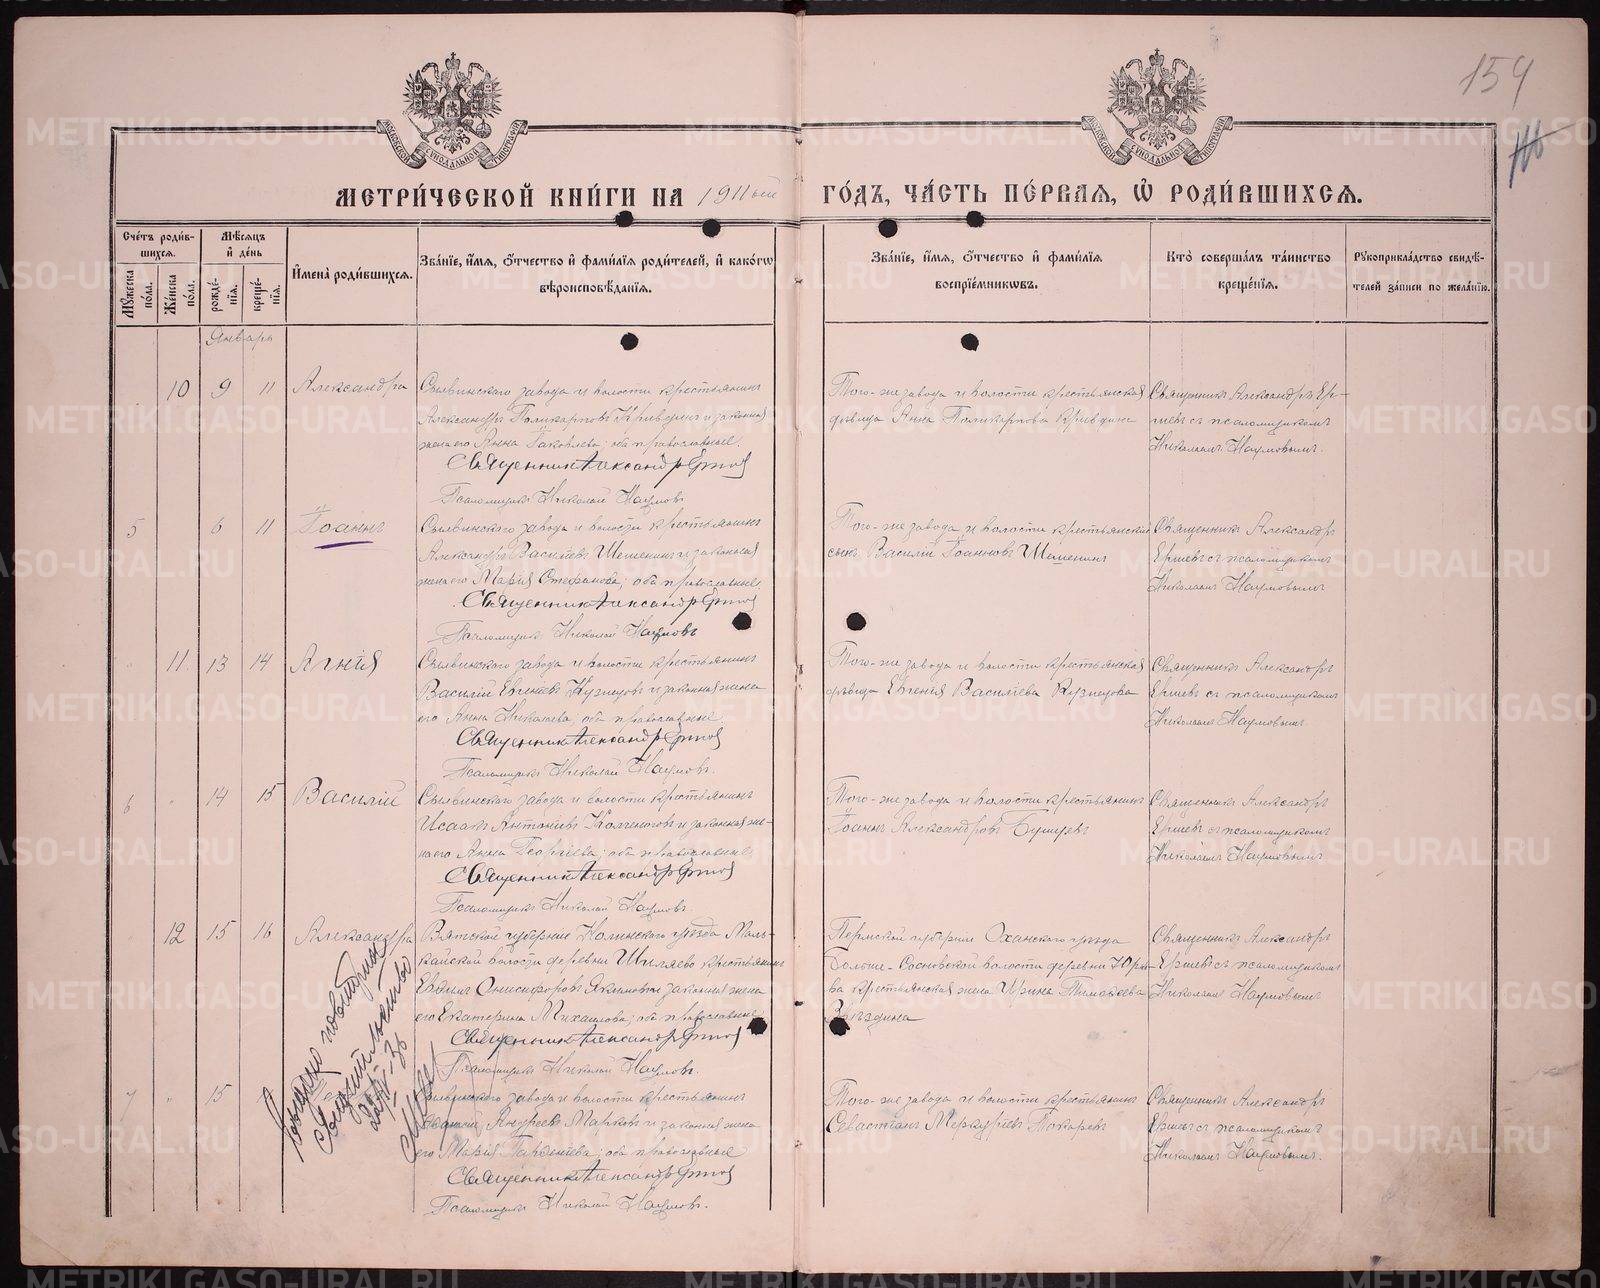 154
МОСКОВСКОЙ СѴНОДАЛЬНОЙ ТИПОГРАФІИ
МОСКОВСКОЙ СѴНОДАЛЬНОЙ ТИПОГРАФІИ
МЕТРИ́ЧЕСКОЙ КНИ́ГИ НА 1911ый ГО́ДЪ, ЧА́СТЬ ПЕ́РВАѦ, Ѡ҆ РОДИ́ВШИХСѦ.
Сче́тъ роди́в-
шихсѧ.
Мѣ́сѧцъ
и҆ де́нь
Мꙋ́жеска по́ла.
Же́нска по́ла.
рожде́-
нїѧ.
креще́-
нїѧ.
И҆мена̀ роди́вшихсѧ.
Зва́нїе, и҆́мѧ, ѻ҆́тчество и҆ фами́лїѧ роди́телей, и҆ како́гѡ
вѣроисповѣ́данїѧ.
Зва́нїе, и҆́мѧ, ѻ҆́тчество и҆ фами́лїѧ
воспрїе́мникѡвъ.
Кто̀ соверша́лъ та́инство
креще́нїѧ.
Рꙋкоприкла́дство свидѣ́-
телей за́писи по жела́нїю.
Январь
10 9 11 Александра
Сылвинскаго завода и волости крестьянинъ
Александръ Поликарповъ Кривдинъ и законная
жена его Анна Іаковлева; оба православные.
Священник Александр Ершов
Псаломщикъ Николай Наумовъ
Того-же завода и волости крестьянская
дѣвица Анна Поликарпова Кривдина
Священникъ Александръ Ер-
шевъ съ псаломщикомъ
Николаемъ Наумовымъ.
5 6 11 Іоаннъ
Сылвинскаго завода и волости крестьянинъ
Александръ Васильевъ Шешенинъ и законная
жена его Марія Стефанова; оба православные.
Священник Александр Ершов
Псаломщикъ Николай Наумовъ
Того-же завода и волости крестьянский
сынъ Василій Іоанновъ Шешенинъ
Священникъ Александръ
Ершевъ съ псаломщикомъ
Николаемъ Наумовымъ
11 13 14 Агнія
Сылвинскаго завода и волости крестьянинъ
Василій Кузнецовъ и законная жена
его Анна Николаева оба православные
Священник Александр Ершов
Псаломщикъ Николай Наумовъ.
Того-же завода и волости крестьянская
дѣвица Евгенія Васильева Кузнецова
Священникъ Александръ
Ершевъ съ псаломщикомъ
Николаемъ Наумовымъ
6 " 14 15 Василій
Сылвинскаго завода и волости крестьянинъ
Исаакъ Антоніевъ и законная же-
на его Анна Георгіева; оба православные
Священник Александр Ершов
Псаломщикъ Николай Наумовъ.
Того-же завода и волости крестьянинъ
Іоаннъ Александровъ Бушуевъ
Священникъ Александръ
Ершевъ съ псаломщикомъ
Николаемъ Наумовымъ
12 15 16 Александра
Вятской губерніи Нолинскаго уѣзда
волости деревни Шиляево крестьянинъ
Евдокимъ Онисифоровъ и законная жена
его Екатерина Михаилова; оба православные
Священник Александр Ершов
Псаломщикъ Николай Наумовъ.
Пермской губерніи Оханскаго уѣзда
Больше-Сосновской волости деревни
крестьянская жена Ирина Тимофеева
Священникъ Александръ
Ершевъ съ псаломщикомъ
Николаемъ Наумовымъ
Выдано повторное
свидетельство
7 " 15
Сылвинскаго завода и волости крестьянинъ
Андреевъ Марковъ и законная жена
его Марія; оба православные
Священник Александр Ершов
Псаломщикъ Николай Наумовъ.
Того-же завода и волости крестьянинъ
Севастіанъ Меркурьевъ Токаревъ
Священникъ Александръ
Ершевъ съ псаломщикомъ
Николаемъ Наумовымъ.
METRIKI.GASO-URAL.RU